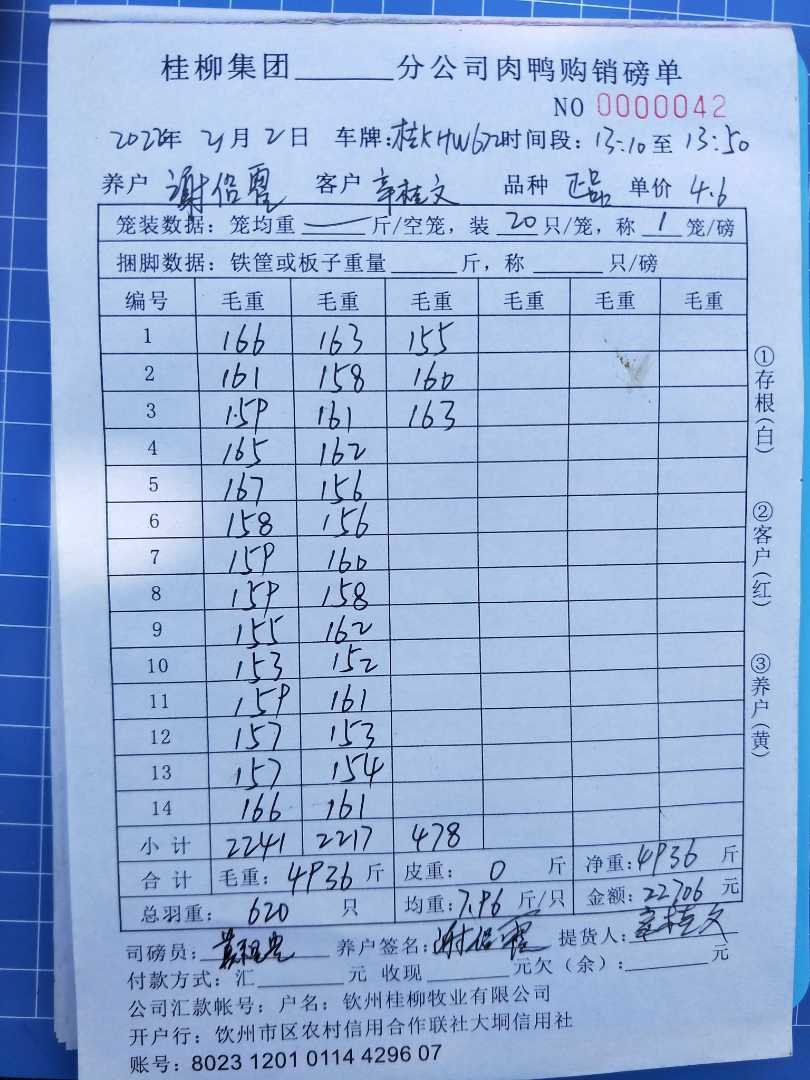 桂柳集团______分公司肉鸭购销磅单
NO 0000042
2022年 4月 2日 车牌:桂KHW672 时间段: 13:10 至 13:50
养户 谢倍霞 客户 辛桂文 品种 正品 单价 4.6
笼装数据: 笼均重 — 斤/空笼, 装 20 只/笼, 称 1 笼/磅
捆脚数据: 铁筐或板子重量______斤, 称______只/磅
编号 毛重 毛重 毛重 毛重 毛重 毛重
1 166 163 155
2 161 158 160
3 159 161 163
4 165 162
5 167 156
6 158 156
7 159 160
8 159 158
9 155 162
10 153 152
11 159 161
12 157 153
13 157 154
14 166 161
小计 2241 2217 478
合计 毛重: 4936 斤 皮重: 0 斤 净重: 4936 斤
总羽重: 620 只 均重: 7.96 斤/只 金额: 22706 元
司磅员: 养户签名: 谢倍霞 提货人: 辛桂文
付款方式: 汇______元 收现______元欠(余):______元
公司汇款帐号: 户名: 钦州桂柳牧业有限公司
开户行: 钦州市区农村信用合作联社大垌信用社
账号: 8023 1201 0114 4296 07
①存根(白)
②客户(红)
③养户(黄)